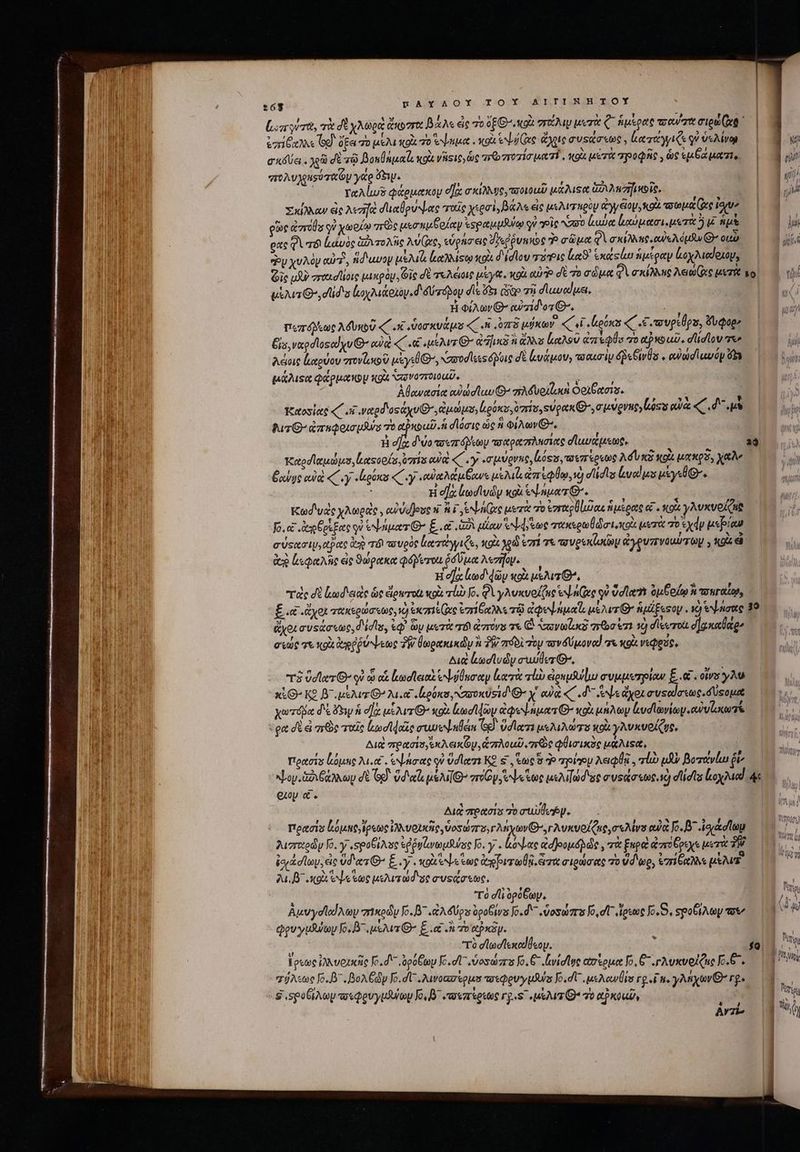 268 ΠΑΥΛΟΥ ΤΟΥ ΑΙΓΙΝΗΤΟΥ
τὰ δὲ χλωρὰ ἄκοπτα βάλε εἰς τὸ ὄξος καὶ πάλιν μετὰ ζ ἡμέρας ταῦτα
ἐπίβαλλε τῷ ὄξει τὸ μέλι καὶ τὸ ἕψημα. καὶ ἑψήσας ἄχρις συστάσεως, κατάγγιζε ἐν ὑελίνῳ
σκεύει. χρῶ δὲ τῷ βοηθήματι καὶ νῆστις, ὡς προποτίσματι, καὶ μετὰ τροφῆς, ὡς ἐμβάματι.
πολυχρηστότατον γάρ ὅστιν.
Γαλίωῦ φάρμακον διὰ σκίλλης, ποιοῦν μάλιστα ἐπιληπτικοῖς.
Σκίλλαν εἰς λεπτὰ διαθρύψας ταῖς χερσὶ, βάλε εἰς μελιτηρὸν ἀγγεῖον, καὶ πωμάσας
ἀπόθου ἐν χωρίῳ πρὸς μεσημβρίαν ἐστραμμένῳ ἐν τοῖς ὑπὸ κύνα καύμασι. μετὰ
τοῦ κυνὸς ἀνατολῆς λύσας, εὑρήσεις διερρυηκὸς τὸ σῶμα τῆς σκίλλης. ἀνελόμενος οὖν
τὸν χυλὸν αὐτῆς, ἥδυνον μέλιτι καλλίστῳ καὶ δίδου τούτοις καθ' ἑκάστην ἡμέραν κοχλιάριον,
τοῖς μὲν παιδίοις μικρὸν, τοῖς δὲ τελείοις μέγα. καὶ αὐτὸ δὲ τὸ σῶμα τῆς σκίλλης λειώσας μετὰ 10
μέλιτος, δίδου κοχλιάριον. δεύτερον δέ ἐστι τοῦτο τῇ δυνάμει.
Η Φίλωνος ἀντίδοτος.
Πεπέρεως λευκοῦ κ. ὑοσκυάμου κ. ὀποῦ μήκωνος ι. κρόκου ε. πυρέθρου, εὐφορ
βίου, ναρδοστάχυος ἀνὰ α. μέλιτος ἀττικοῦ ἢ ἄλλου καλοῦ ἀπέφθου τὸ ἀρκοῦν. δίδου
λείοις καρύου ποντικοῦ μέγεθος, κυάμου, πᾶσιν ἐρεβίνθου. ἀνώδυνόν ἐστι
μάλιστα φάρμακον καὶ ὑπνοποιοῦν.
Ἀθανασία ἀνώδυνος πλευριτικὴ Ὀριβασίου.
Κασσίας η. ναρδοστάχυος, ἀμώμου, κρόκου, ὀπίου, στύρακος, σμύρνης, κόστου ἀνὰ δ. μέ
λιτος ἀπηφρισμένου τὸ ἀρκοῦν. ἡ δόσις ὡς ἡ Φίλωνος.
Η διὰ δύο πεπέρεων παραπλησίας δυνάμεως. 20
Καρδαμώμου, καστορίου, ὀπίου ἀνὰ γ. σμύρνης, κόστου, πεπέρεως λευκοῦ καὶ μακροῦ, χαλ
βάνης ἀνὰ γ. κρόκου γ. ἀναλάμβανε μέλιτι ἀπέφθῳ, καὶ δίδου κυάμου μέγεθος.
Η διὰ κωδυῶν καὶ ἑψήματος.
Κωδυὰς χλωρὰς, ἀνύδρους ιε, ἑψήσας μετὰ τὸ ἀποβρέξαι ἡμέρας α. καὶ γλυκυρίζης
α ἀποβρέξας ἐν ἑψήματος ξ. α. ἕψε, ἕως τακερωθῶσι, καὶ μετὰ τὸ ἔχειν μετρίαν
σύστασιν, ἄρας ἀπὸ τοῦ πυρὸς κατάγγιζε, καὶ χρῶ ἐπί τε πυρεκτικῶν ἀγρυπνούντων, καὶ εἰ
ἀπὸ κεφαλῆς εἰς θώρακα φέρεται ῥεῦμα λεπτόν.
Η διὰ κωδειῶν καὶ μέλιτος.
Τὰς δὲ κωδείας ὡς εἴρηται καὶ τὴν τῆς γλυκυρίζης ἑψήσας ἐν ὕδατι ὀμβρίῳ ἢ πηγαίῳ,
ξ. α. ἄχρι τακερώσεως, καὶ ἐκπιέσας ἐπίβαλλε τῷ ἀφεψήματι μέλιτος ἡμίξεστον. καὶ ἑψήσας 30
ἄχρι συστάσεως, δίδου, ἐφ' ὧν μετὰ τοῦ ἀπόνου τε καὶ ὑπνωτικοῦ πρόσεστι καὶ διακαθάρ
σεώς τε καὶ ἀπορρύψεως τῶν θωρακικῶν ἢ τῶν περὶ τὸν πνεύμονα τε καὶ νεφρούς.
Διὰ κωδυῶν σύνθετος.
Τοῦ ὕδατος ἐν ᾧ αἱ κωδεῖαι ἑψήθησαν κατὰ τὴν εἰρημένην συμμετρίαν ξ. α. οἴνου γλυ
κέος Κο β. μέλιτος λι. α. κρόκου, ὑποκυστίδος χ ἀνὰ δ. ἕψε ἄχρι συστάσεως. εὐστομα
χωτέρα δέ ἐστιν ἡ διὰ μέλιτος καὶ κωδειῶν ἀφεψήματος καὶ μήλων κυδωνίων. ἀνυτικωτέ
ρα δὲ εἰ πρὸς ταῖς κωδείαις συνεψηθείη τῷ ὕδατι μελιλώτου καὶ γλυκυρίζης.
Διὰ πρασίου, ἐκλεικτὸν, ἁπλοῦν, πρὸς φθισικοὺς μάλιστα.
Πρασίου κόμης λι. α. ἑψήσας ἐν ὕδατι Κο ϛ, ἕως οὗ τὸ τρίτον λειφθῇ, τὴν μὲν βοτάνην ῥῖ
ψον. ἐπιβάλλων δὲ τῷ ὕδατι μέλιτος ἕψε ἕως μελιτώδους συστάσεως. καὶ δίδου κοχλιά 40
ριον α.
Διὰ πρασίου τὸ σύνθετον.
Πρασίου κόμης, ἴρεως ἰλλυρικῆς, ὑοσώπου, γλήχωνος, γλυκυρίζης, σελίνου ἀνὰ β. ἰσχάδων
λιπαρῶν γ. στροβίλους ἐρρινωμένους γ. κόψας ἁδρομερῶς, τὰ ξηρὰ ἀπόβρεχε μετὰ τῶν
ἰσχάδων, εἰς ὕδατος ξ. γ. καὶ ἕψε ἕως ἀποτριτωθῇ. εἶτα σιρώσας τὸ ὕδωρ, ἐπίβαλλε μέλιτος
λι. β. καὶ ἕψε ἕως μελιτώδους συστάσεως.
Τὸ δι' ὀρόβων.
Ἀμυγδάλων πικρῶν β. ἀλεύρου ὀροβίνου δ. ὑοσώπου δ. ἴρεως ϛ, στροβίλων πε
φρυγμένων β. μέλιτος ξ. α. ἢ τὸ ἀρκοῦν.
Τὸ δωδεκάθεον. 50
Ἴρεως ἰλλυρικῆς δ. ὀρόβων δ. ὑοσώπου β. κνίδης σπέρμα β. γλυκυρίζης β.
τήλεως β. βολβῶν δ. λινοσπέρμου πεφρυγμένου δ. μελανθίου γρ. ιη. γλήχωνος γρ.
ϛ. στροβίλων πεφρυγμένων β. πεπέρεως γρ. ϛ. μέλιτος τὸ ἀρκοῦν.
Ἀντι